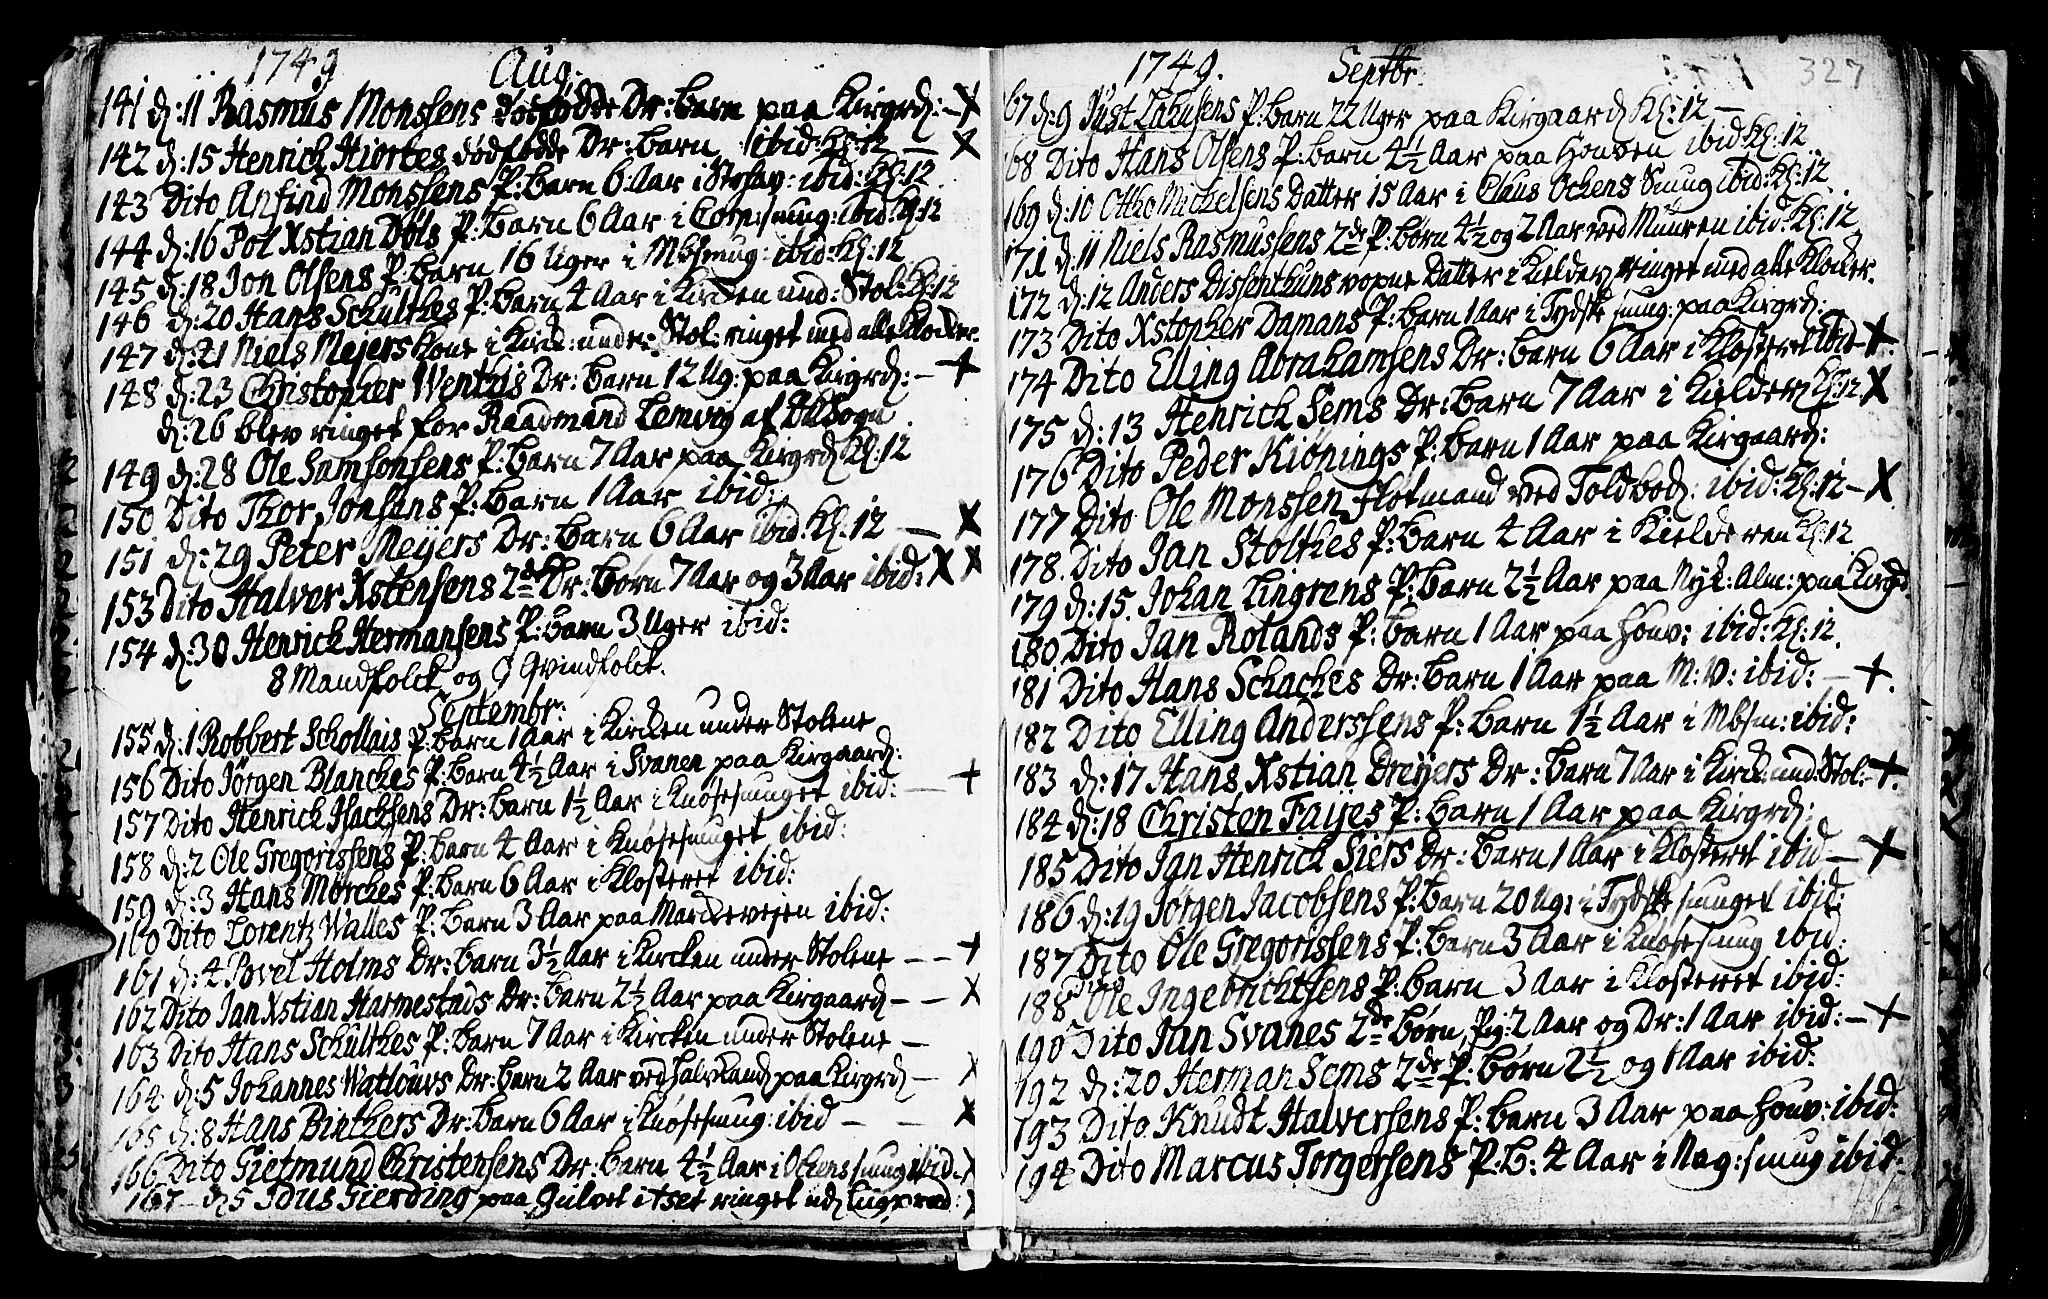 1749 Aug.
141 d: 11 Rasmus Monssens dödfödde Dr: barn paa Kirgrd: – X
142 d: 15 Henrich Hiortes dödfödde Dr: barn ibid: Kl: 12 — X
143 Dito Anfind Monssens P: barn 6 Aar i Stræv: ibid: Kl: 12
144 d: 16 Pol Xstian Döls P: barn 6 Aar i Corn:smug: ibid: Kl: 12
145 d: 18 Jon Olsens P: barn 16 Uger i Mbsmug: ibid: Kl: 12
146 d: 20 Hans Schulthes P: barn 4 Aar i Kircken und: Stol: Kl: 12
147 d: 21 Niels Mejers Kone i Kirck: under Stol: ringet med alle Klocker.
148 d: 23 Christopher Wenthis Dr: barn 12 Ug: paa Kirgrd: – +
d: 26 blev ringet for Raadmand Lemvig af Sogn
149 d: 28 Ole Samsonsens P: barn 7 Aar paa Kirgrd Kl: 12
150 Dito Thor Jonsens P: barn 1 Aar ibid:
151 d: 29 Peter Meyers Dr: barn 6 Aar ibid. Kl: 12 — X
153 Dito Halvor Xstensens 2de Dr: börn 7 Aar og 3 Aar ibid: X X
154 d: 30 Henrich Hermansens P: barn 3 Uger ibid:
8 Mandfolck og 6 Qvindfolck.
Septembr:
155 d: 1 Robbert Schollais P: barn 1 Aar i Kircken under Stolene
156 Dito Jörgen Blanches P: barn 4½ Aar i Svanen paa Kirgaard:
157 Dito Henrich Isachsens Dr: barn 1½ Aar i Knösesmuget ibid: — +
158 d: 2 Ole Gregorissens P: barn 4 Aar i Knösesmuget ibid:
159 d: 3 Hans Mörches P: barn 6 Aar i Klosteret ibid:
160 Dito Lorentz Walles P: barn 3 Aar paa Marckevejen ibid:
161 d: 4 Povel Holms Dr: barn 3½ Aar i Kircken under Stolene – – +
162 Dito Jan Xstian Harmestads Dr: barn 2½ Aar paa Kirgaard – – X
163 Dito Hans Schulthes P: barn 7 Aar i Kircken under Stolene –
164 d: 5 Johannes Watlours Dr: barn 2 Aar ved paa Kirgrd – X
165 d: 8 Hans Binthers Dr: barn 6 Aar i Knösesmug: ibid – – X
166 Dito Gietmund Christensens Dr: barn 4½ Aar i Ockens smug ibid: X
167 – d: 5 Idus Gierding paa Gulvet ringet
1749. Septbr. 327
67 d: 9 Just P: barn 22 Uger paa Kirgaard Kl: 12 –
168 Dito Hans Olsens P: barn 4½ Aar paa Houven ibid: Kl: 12
169 d: 10 Otho Michelsens Datter 15 Aar i Claus Ockens Smug ibid: Kl: 12
171 d: 11 Niels Rasmussens 2de P: börn 4½ og 2 Aar ved Muuren ibid: Kl: 12
172 d: 12 Anders voxne Datter i Kielder ringet med alle Klocker.
173 Dito Xstopher Damans P: barn 1 Aar i Tydske smug: paa Kirgrd:
174 Dito Elling Abrahamsens Dr: barn 6 Aar i Klosteret ibid +
175 d: 13 Henrich Sems Dr: barn 7 Aar i Kielder Kl: 12 X
176 Dito Peder Kiönings P: barn 1 Aar paa Kirgaard:
177 Dito Ole Monssen Flötmand ved Toldbod: ibid: Kl: 12 – X
178. Dito Jan Stolthes P: barn 4 Aar i Kielderen Kl: 12
179 d: 15. Johan Lingrens P: barn 2½ Aar paa Nyk: Alm: paa Kirgd.
180 Dito Jan Rolands P: barn 1 Aar paa Houv: ibid: Kl: 12.
181 Dito Hans Schaches Dr: barn 1 Aar paa M: V: ibid: – +.
182 Dito Elling Anderssens P: barn 1½ Aar i Mbsm: ibid:
183 d: 17 Hans Xstian Dreyers Dr: barn 7 Aar i Kirck: und: Stol: – +
184 d: 18 Christen Fayes P: barn 1 Aar paa Kirgrd:
185 Dito Jan Henrich Siers Dr: barn 1 Aar i Klosteret ibid – +
186 d: 19 Jörgen Jacobsens P: barn 20 Ug: i Tydske smuget ibid:
187 Dito Ole Gregorissens P: barn 3 Aar i Knösesmug ibid:
188 Dito Ole Ingebrichtsens P: barn 3 Aar i Klosteret ibid:
190 Dito Jan Svanes 2de börn, Pig: 2 Aar og Dr: 1 Aar ibid: – +
192 d: 20 Herman Sems 2de P: börn 2½ og 1 Aar ibid:
193 Dito Knudt Halversens P: barn 3 Aar paa Houv: ibid:
194 Dito Marcus Torgersens P: b: 4 Aar i Nag: smug ibid: